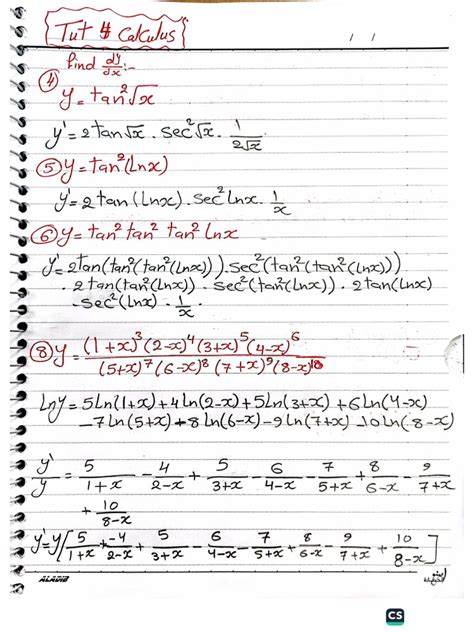 Tut 4 Calculus
/ /
find dy/dx :-
④ y = tan²√x
y' = 2 tan√x · sec²√x · 1/(2√x)
⑤ y = tan²(lnx)
y' = 2 tan(lnx) · sec² lnx · 1/x
⑥ y = tan² tan² tan² lnx
y' = 2tan(tan²(tan²(lnx))) · sec²(tan²(tan²(lnx)))
· 2tan(tan²(lnx)) · sec²(tan²(lnx)) · 2tan(lnx)
· sec²(lnx) · 1/x ·
⑧ y = (1+x)³(2-x)⁴(3+x)⁵(4-x)⁶ / (5+x)⁷(6-x)⁸(7+x)⁹(8-x)¹⁰
lny = 5ln(1+x) + 4ln(2-x) + 5ln(3+x) + 6ln(4-x)
-7ln(5+x) + 8ln(6-x) - 9ln(7+x) - 10ln(8-x)
y'/y = 5/(1+x) - 4/(2-x) + 5/(3+x) - 6/(4-x) - 7/(5+x) + 8/(6-x) - 9/(7+x)
+ 10/(8-x)
y' = y[5/(1+x) + -4/(2-x) + 5/(3+x) - 6/(4-x) - 7/(5+x) + 8/(6-x) - 9/(7+x) + 10/(8-x)]
ALADIB
CS